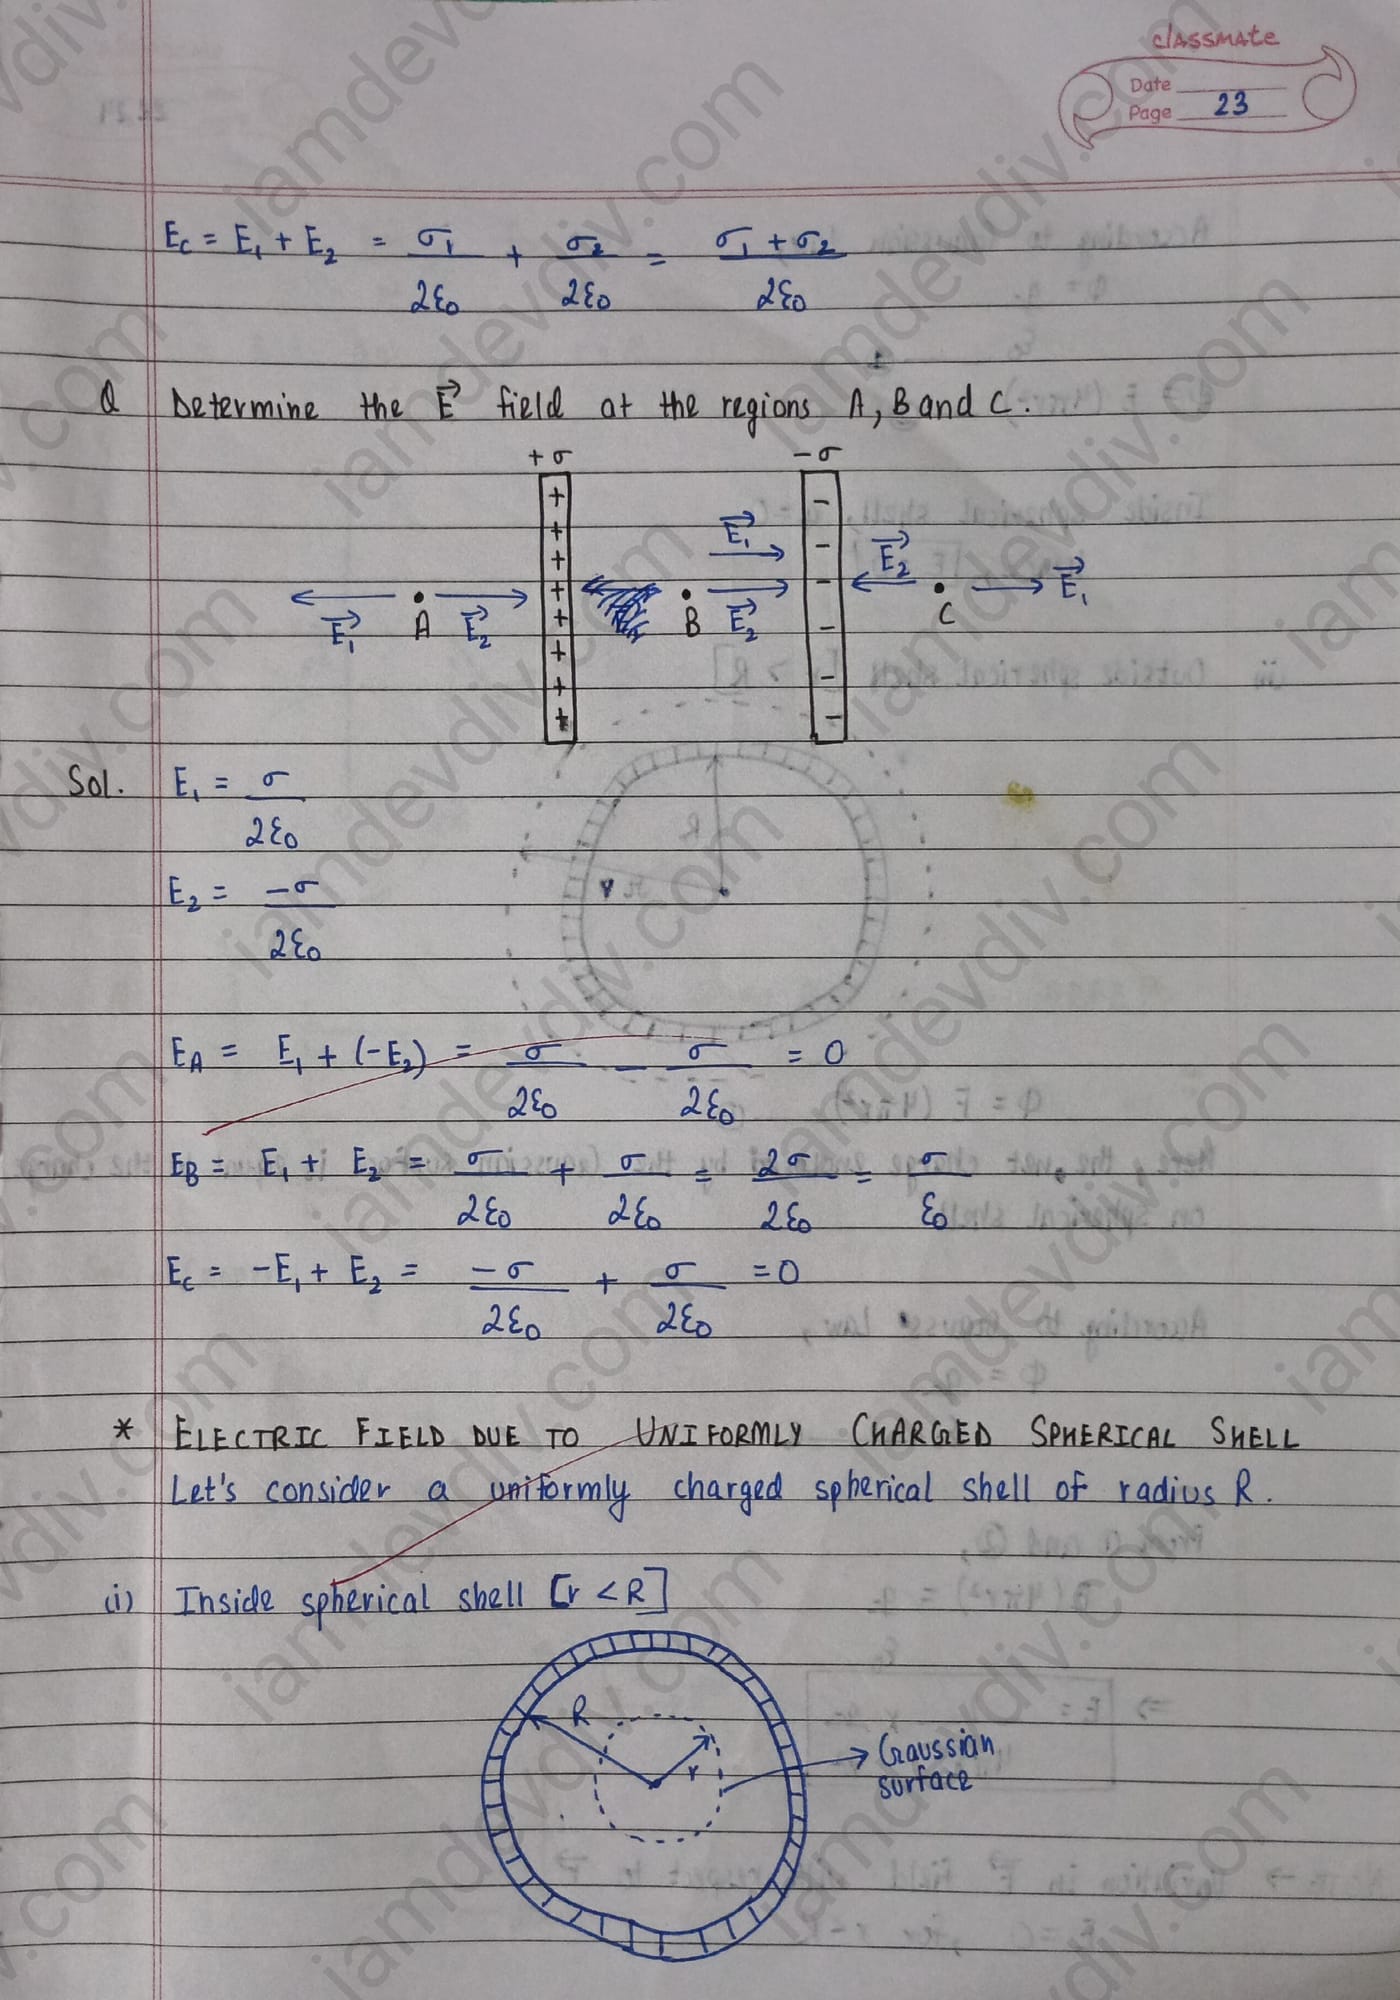 classmate
Date
Page 23
Ec = E₁ + E₂ = σ₁/2ε₀ + σ₂/2ε₀ = σ₁ + σ₂/2ε₀
Q Determine the E⃗ field at the regions A, B and C.
+σ -σ
E⃗₁ A E⃗₂ B E⃗₁ E⃗₂ E⃗₂ C E⃗₁
Sol. E₁ = σ/2ε₀
E₂ = -σ/2ε₀
EA = E₁ + (-E₂) = σ/2ε₀ - σ/2ε₀ = 0
EB = E₁ + E₂ = σ/2ε₀ + σ/2ε₀ = 2σ/2ε₀ = σ/ε₀
Ec = -E₁ + E₂ = -σ/2ε₀ + σ/2ε₀ = 0
* ELECTRIC FIELD DUE TO UNIFORMLY CHARGED SPHERICAL SHELL
Let's consider a uniformly charged spherical shell of radius R.
(i) Inside spherical shell [r < R]
R
r
Gaussian
surface
iamdevdiv.com